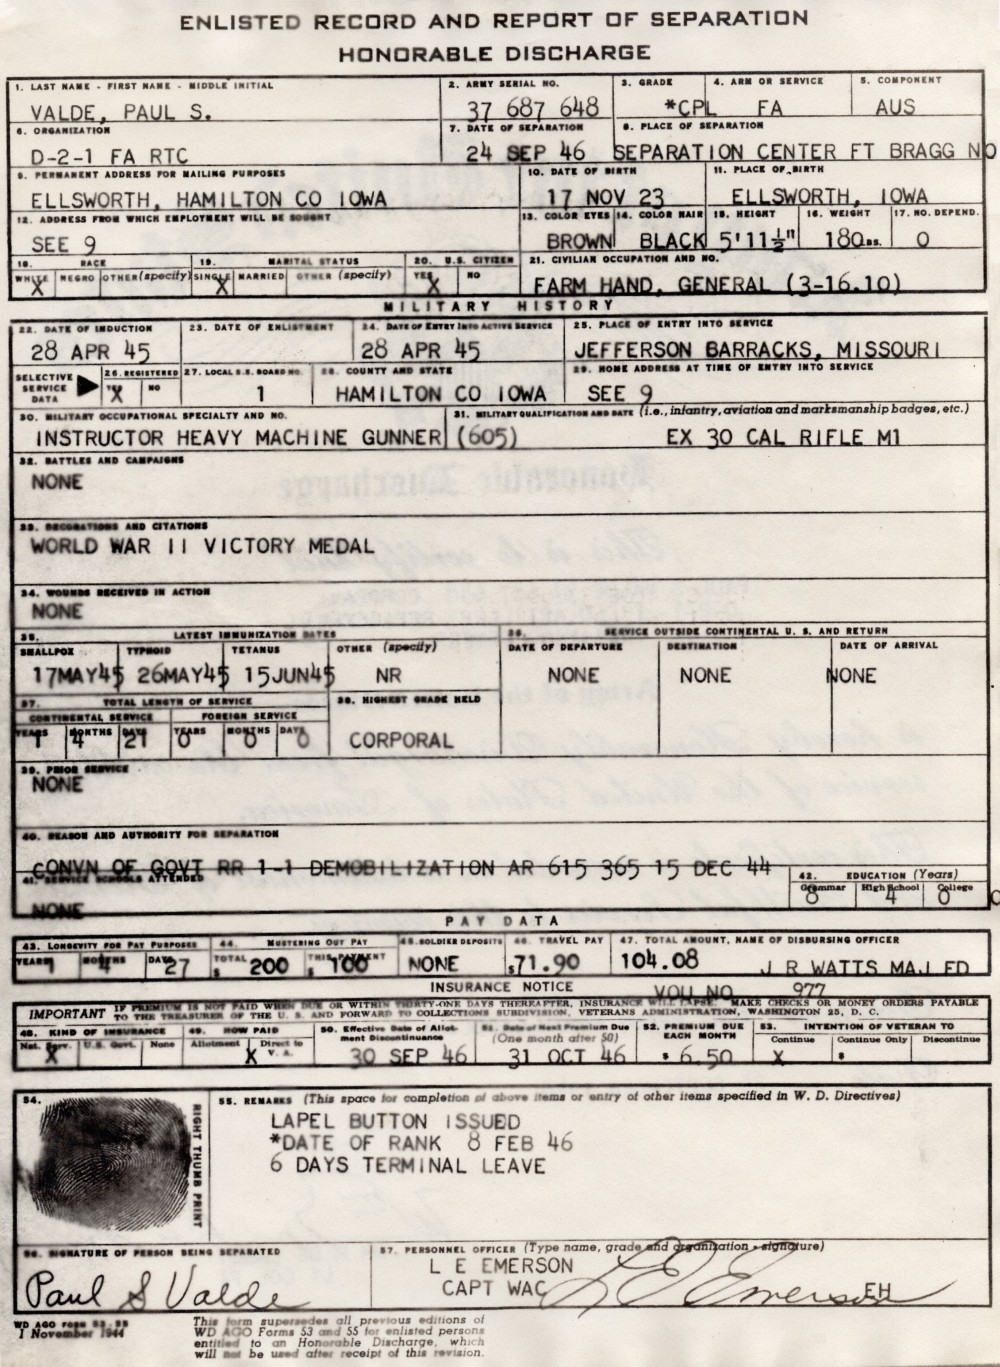 ENLISTED RECORD AND REPORT OF SEPARATION
HONORABLE DISCHARGE
1. LAST NAME - FIRST NAME - MIDDLE INITIAL
VALDE, PAUL S.
2. ARMY SERIAL NO.
37 687 648
3. GRADE
*CPL
4. ARM OR SERVICE
FA
5. COMPONENT
AUS
6. ORGANIZATION
D-2-1 FA RTC
7. DATE OF SEPARATION
24 SEP 46
8. PLACE OF SEPARATION
SEPARATION CENTER FT BRAGG NO
9. PERMANENT ADDRESS FOR MAILING PURPOSES
ELLSWORTH, HAMILTON CO IOWA
10. DATE OF BIRTH
17 NOV 23
11. PLACE OF BIRTH
ELLSWORTH, IOWA
12. ADDRESS FROM WHICH EMPLOYMENT WILL BE SOUGHT
SEE 9
13. COLOR EYES
BROWN
14. COLOR HAIR
BLACK
15. HEIGHT
5'11½"
16. WEIGHT
180 LBS.
17. NO. DEPEND.
0
18. RACE
WHITE X NEGRO OTHER (specify)
19. MARITAL STATUS
SINGLE X MARRIED OTHER (specify)
20. U.S. CITIZEN
YES X NO
21. CIVILIAN OCCUPATION AND NO.
FARM HAND, GENERAL (3-16.10)
MILITARY HISTORY
22. DATE OF INDUCTION
28 APR 45
23. DATE OF ENLISTMENT
24. DATE OF ENTRY INTO ACTIVE SERVICE
28 APR 45
25. PLACE OF ENTRY INTO SERVICE
JEFFERSON BARRACKS, MISSOURI
SELECTIVE SERVICE DATA
26. REGISTERED
YES X NO
27. LOCAL S.S. BOARD NO.
1
28. COUNTY AND STATE
HAMILTON CO IOWA
29. HOME ADDRESS AT TIME OF ENTRY INTO SERVICE
SEE 9
30. MILITARY OCCUPATIONAL SPECIALTY AND NO.
INSTRUCTOR HEAVY MACHINE GUNNER (605)
31. MILITARY QUALIFICATION AND DATE (i.e., infantry, aviation and marksmanship badges, etc.)
EX 30 CAL RIFLE M1
32. BATTLES AND CAMPAIGNS
NONE
33. DECORATIONS AND CITATIONS
WORLD WAR II VICTORY MEDAL
34. WOUNDS RECEIVED IN ACTION
NONE
35. LATEST IMMUNIZATION DATES
SMALLPOX TYPHOID TETANUS OTHER (specify)
17MAY45 26MAY45 15JUN45 NR
36. SERVICE OUTSIDE CONTINENTAL U. S. AND RETURN
DATE OF DEPARTURE DESTINATION DATE OF ARRIVAL
NONE NONE NONE
37. TOTAL LENGTH OF SERVICE
CONTINENTAL SERVICE FOREIGN SERVICE
YEARS MONTHS DAYS YEARS MONTHS DAYS
1 4 21 0 0 0
38. HIGHEST GRADE HELD
CORPORAL
39. PRIOR SERVICE
NONE
40. REASON AND AUTHORITY FOR SEPARATION
CONVN OF GOVT RR 1-1 DEMOBILIZATION AR 615 365 15 DEC 44
41. SERVICE SCHOOLS ATTENDED
NONE
42. EDUCATION (Years)
Grammar High School College
8 4 0
PAY DATA
43. LONGEVITY FOR PAY PURPOSES
YEARS MONTHS DAYS
1 4 27
44. MUSTERING OUT PAY
TOTAL THIS PAYMENT
$ 200 $ 100
45. SOLDIER DEPOSITS
NONE
46. TRAVEL PAY
$71.90
47. TOTAL AMOUNT, NAME OF DISBURSING OFFICER
104.08 J R WATTS MAJ FD
VOU NO 977
INSURANCE NOTICE
IMPORTANT IF PREMIUM IS NOT PAID WHEN DUE OR WITHIN THIRTY-ONE DAYS THEREAFTER, INSURANCE WILL LAPSE. MAKE CHECKS OR MONEY ORDERS PAYABLE
TO THE TREASURER OF THE U. S. AND FORWARD TO COLLECTIONS SUBDIVISION, VETERANS ADMINISTRATION, WASHINGTON 25, D. C.
48. KIND OF INSURANCE
Nat. Serv. X U.S. Govt. None
49. HOW PAID
Allotment Direct to V. A. X
50. Effective Date of Allotment Discontinuance
30 SEP 46
51. Date of Next Premium Due (One month after 50)
31 OCT 46
52. PREMIUM DUE EACH MONTH
$ 6.50
53. INTENTION OF VETERAN TO
Continue Continue Only Discontinue
X $
54.
RIGHT THUMB PRINT
55. REMARKS (This space for completion of above items or entry of other items specified in W. D. Directives)
LAPEL BUTTON ISSUED
*DATE OF RANK 8 FEB 46
6 DAYS TERMINAL LEAVE
56. SIGNATURE OF PERSON BEING SEPARATED
Paul S Valde
57. PERSONNEL OFFICER (Type name, grade and organization - signature)
L E EMERSON
CAPT WAC
L E Emerson EH
WD AGO FORM 53-55
1 November 1944
This form supersedes all previous editions of
WD AGO Forms 53 and 55 for enlisted persons
entitled to an Honorable Discharge, which
will not be used after receipt of this revision.